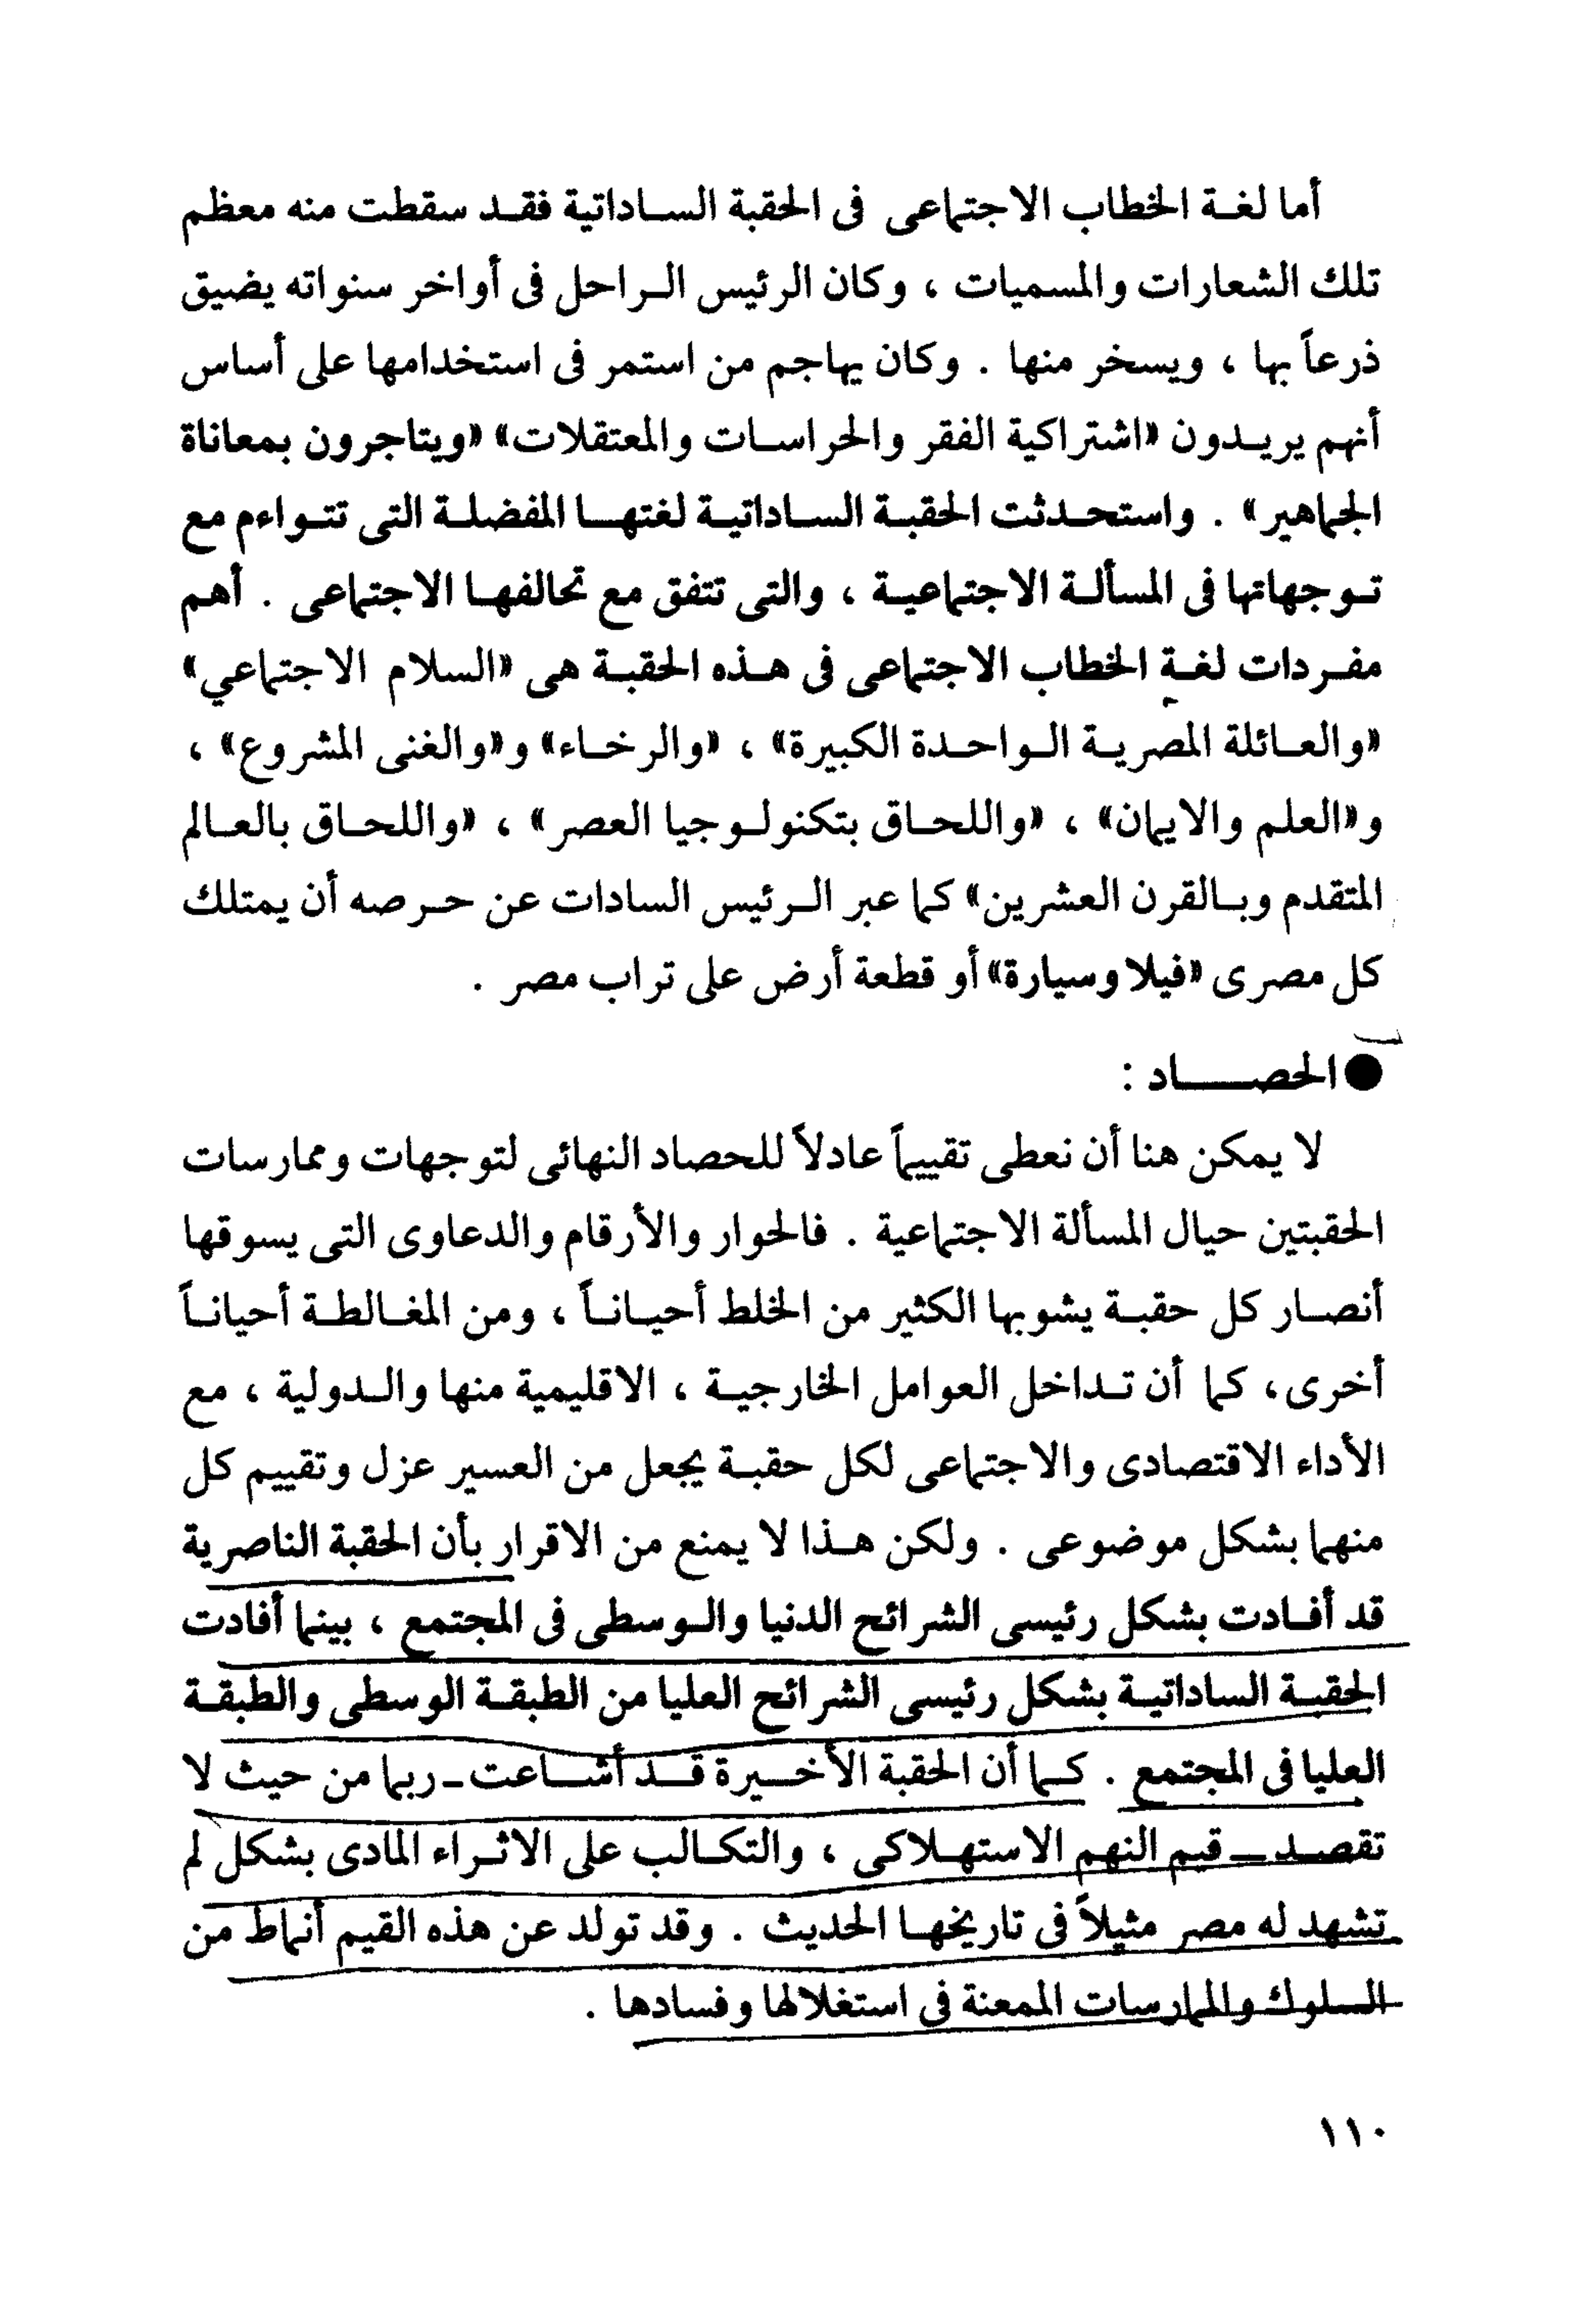 أما لغة الخطاب الاجتماعى فى الحقبة الساداتية فقد سقطت منه معظم
تلك الشعارات والمسميات ، وكان الرئيس الراحل فى أواخر سنواته يضيق
ذرعاً بها ، ويسخر منها . وكان يهاجم من استمر فى استخدامها على أساس
أنهم يريدون «اشتراكية الفقر والحراسات والمعتقلات» «ويتاجرون بمعاناة
الجماهير» . واستحدثت الحقبة الساداتية لغتها المفضلة التى تتواءم مع
توجهاتها فى المسألة الاجتماعية ، والتى تتفق مع تحالفها الاجتماعى . أهم
مفردات لغة الخطاب الاجتماعى فى هذه الحقبة هى «السلام الاجتماعي»
«والعائلة المصرية الواحدة الكبيرة» ، «والرخاء» و«والغنى المشروع» ،
و«العلم والايمان» ، «واللحاق بتكنولوجيا العصر» ، «واللحاق بالعالم
المتقدم وبالقرن العشرين» كما عبر الرئيس السادات عن حرصه أن يمتلك
كل مصرى «فيلا وسيارة» أو قطعة أرض على تراب مصر .
● الحصاد :
لا يمكن هنا أن نعطى تقييماً عادلاً للحصاد النهائى لتوجهات وممارسات
الحقبتين حيال المسألة الاجتماعية . فالحوار والأرقام والدعاوى التى يسوقها
أنصار كل حقبة يشوبها الكثير من الخلط أحياناً ، ومن المغالطة أحياناً
أخرى، كما أن تداخل العوامل الخارجية ، الاقليمية منها والدولية ، مع
الأداء الاقتصادى والاجتماعى لكل حقبة يجعل من العسير عزل وتقييم كل
منهما بشكل موضوعى . ولكن هذا لا يمنع من الاقرار بأن الحقبة الناصرية
قد أفادت بشكل رئيسى الشرائح الدنيا والوسطى فى المجتمع ، بينما أفادت
الحقبة الساداتية بشكل رئيسى الشرائح العليا من الطبقة الوسطى والطبقة
العليا فى المجتمع . كما أن الحقبة الأخيرة قد أشاعت - ربما من حيث لا
تقصد - قيم النهم الاستهلاكى ، والتكالب على الاثراء المادى بشكل لم
تشهد له مصر مثيلاً فى تاريخها الحديث . وقد تولد عن هذه القيم أنماط من
السلوك والممارسات الممعنة فى استغلالها وفسادها .
١١٠